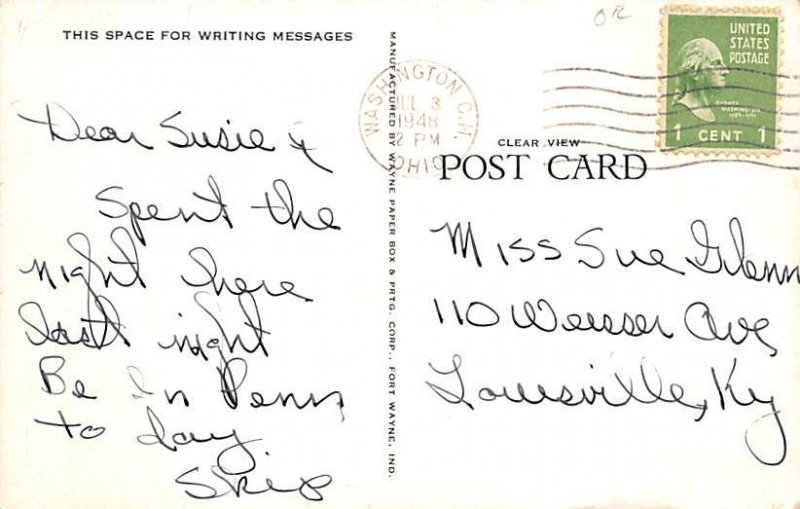 THIS SPACE FOR WRITING MESSAGES
Dear Susie &
Spent the
night here
last night
Be in Penn
to day
Skip
MANUFACTURED BY WAYNE PAPER BOX & PRTG. CORP., FORT WAYNE, IND.
WASHINGTON C.H.
JUL 3
1948
2 PM
OHIO
UNITED
STATES
POSTAGE
GEORGE
WASHINGTON
1789-1797
1 CENT 1
CLEAR VIEW
POST CARD
Miss Sue Glenn
110 Weisser Ave
Louisville, Ky